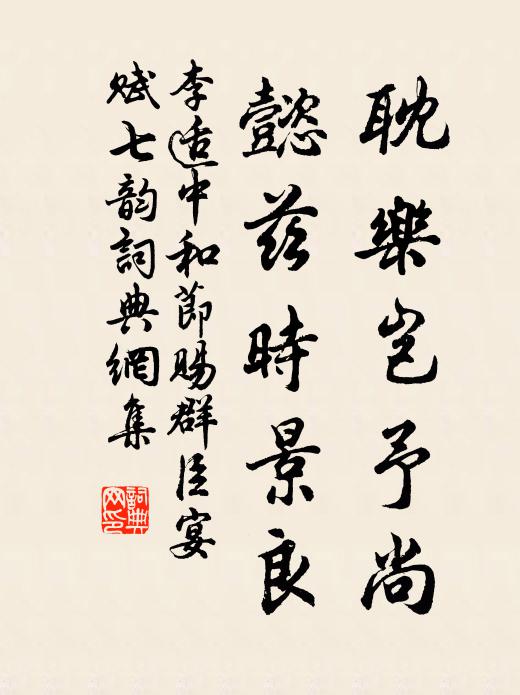 耽樂豈予尚
懿茲時景良
李适中和節賜群臣宴
賦七韵詞典網集
詞典網印